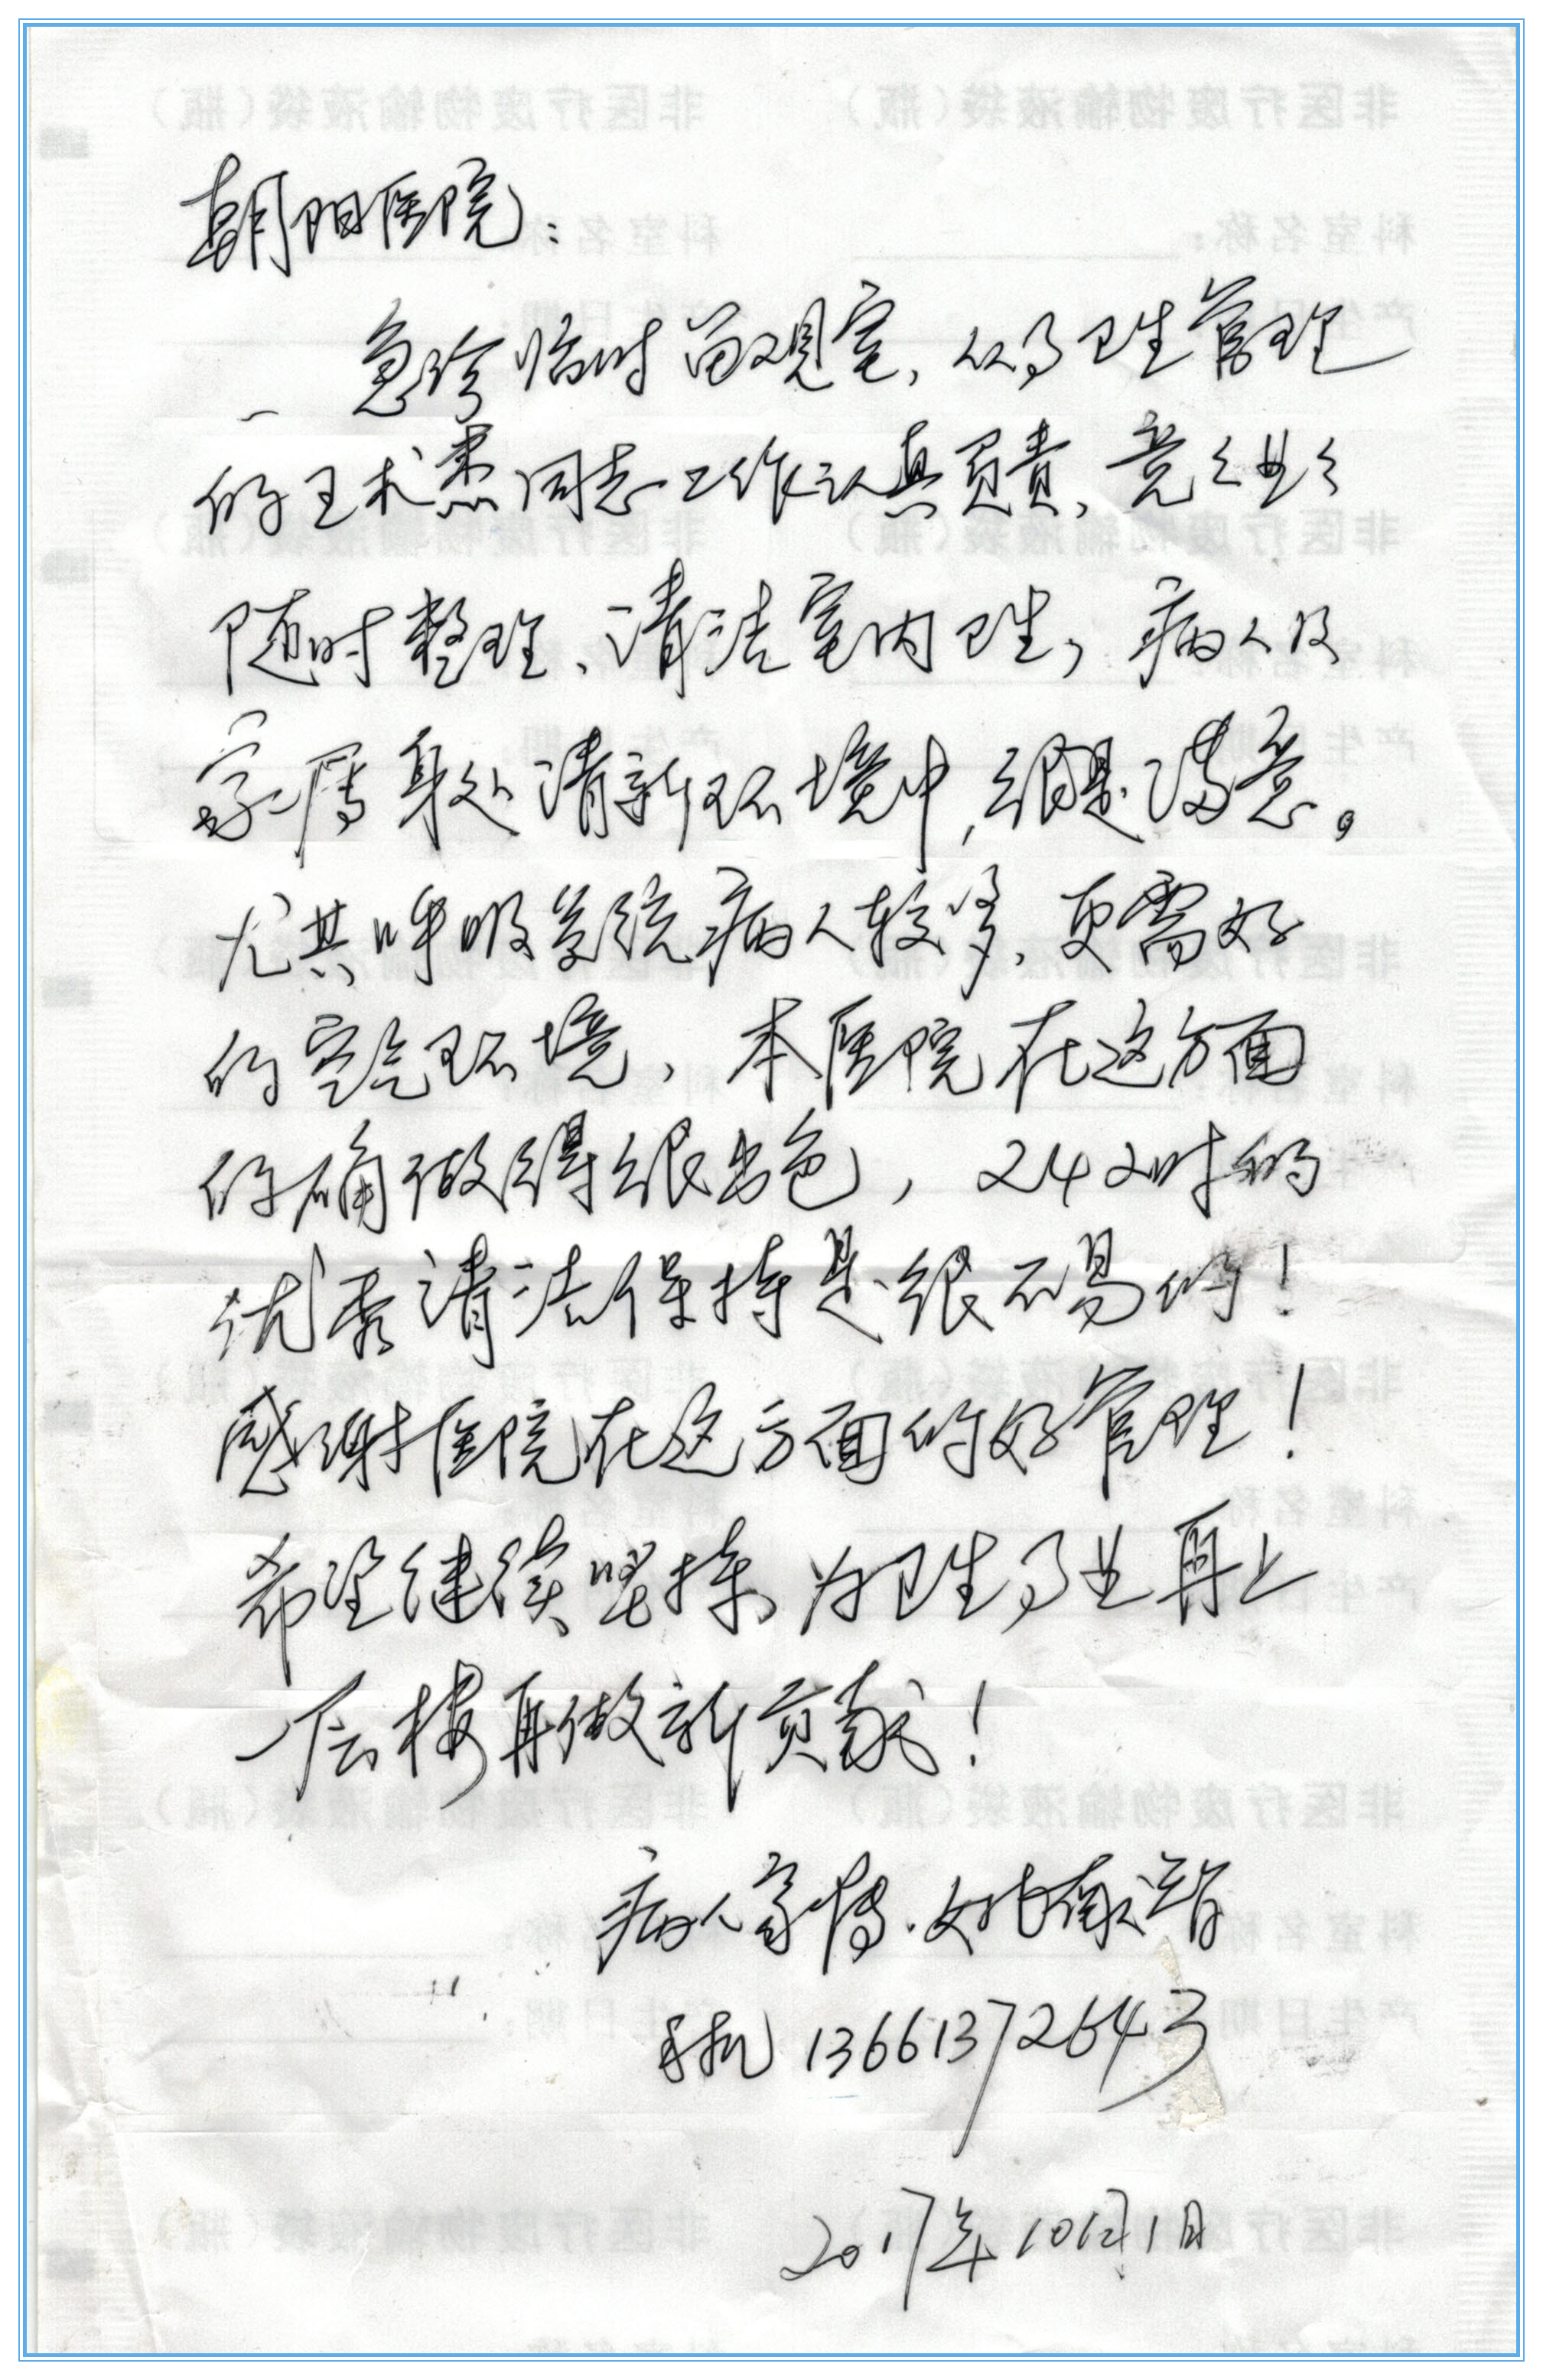 朝阳医院：
急诊临时留观室，从事卫生管理
的王术　同志工作认真负责，兢兢业业
随时整理、清洁室内卫生，病人及
家属身处清新环境中，很是满意。
尤其呼吸系统病人较多，更需好
的空气环境，本医院在这方面
的确做得很出色，24小时的
优秀清洁保持是很不易的！
感谢医院在这方面的好管理！
希望继续坚持为卫生事业再上
一层楼再做新贡献！
病人家属·姚
手机 13661372643
2017年10月1日